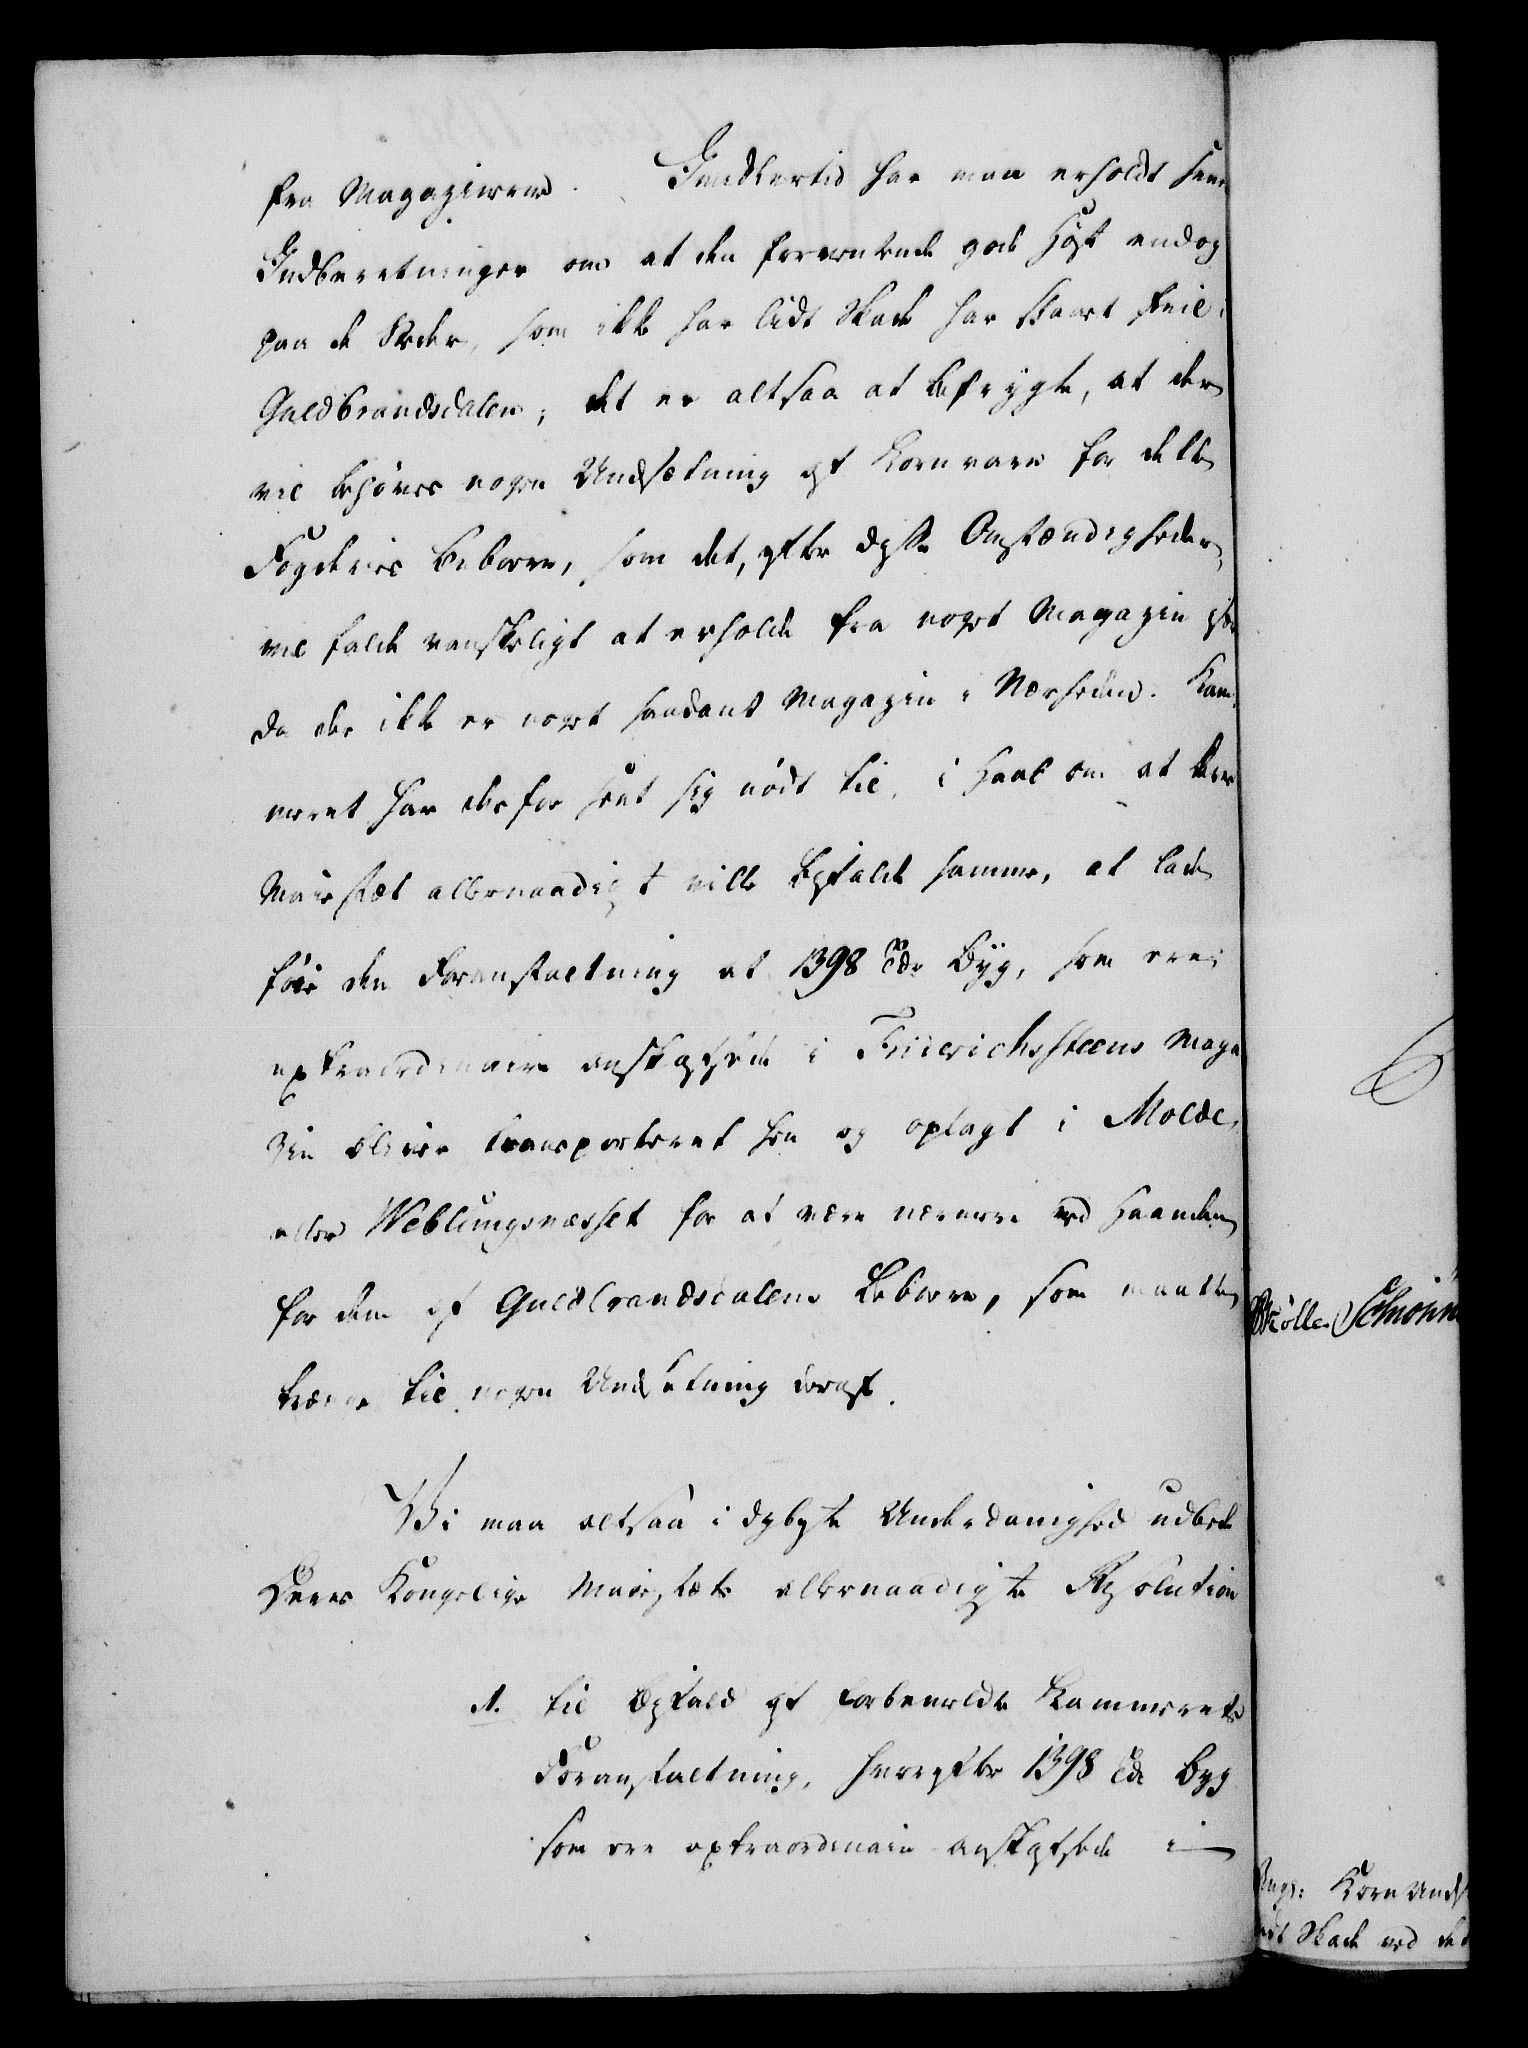 fra Magazinerne. Imidlertid har man erholdt
Indberetninger om at den forventende gode Høst endog
paa de Steder, som ikke har lidt Skade har slaaet feil i
Guldbrandsdalen; det er altsaa at befrygte, at der
vil behøves nogen Undsætning af Kornvare for dette
Fogderies Beboere, som det, efter disse Omstændigheder
vil falde vanskeligt at erholde fra noget Magazin
da der ikke er noget saadant Magazin i Nærheden. Kam-
meret har derfor seet sig nødt til, i Haab om at Deres
Majestæt allernaadigst ville bifalde samme, at lade
føie den Foranstaltning at 1398 Tdr Byg, som ere
extraordinaire anskaffede i Friderichssteens Maga
zin bliver transporteret hen og oplagt i Molde
eller Weblungsnæsset for at være nærmere ved Haanden
for dem af Guldbrandsdalens Beboere, som maatte
trænge til nogen Undsætning deraf.
Vi maa altsaa i dybeste Underdanighed udbede
Deres Kongelige Majestæts allernaadigste Resolution
1. til Bifald af forbemeldte Kammerets
Foranstaltning, hvorefter 1398 Tdr Byg
som ere extraordinair anskaffede i
Møller Schiønn
Korn Unds
Skade ved de